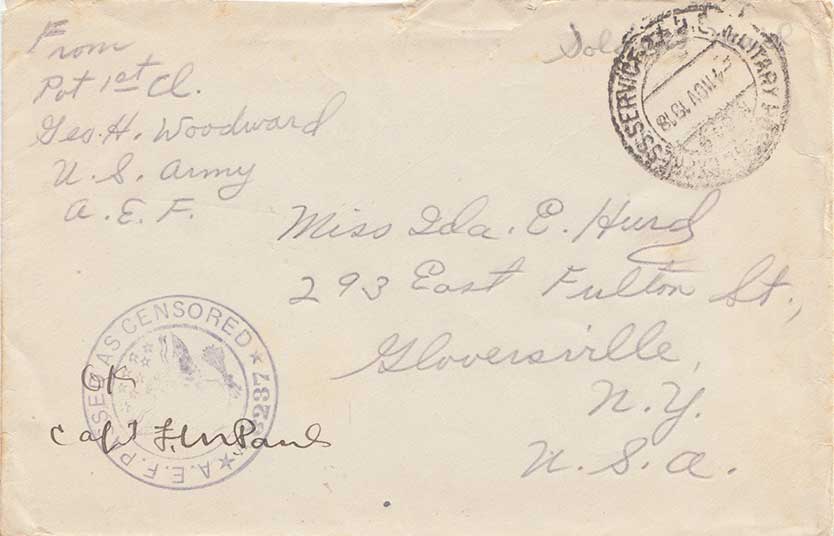 From
Pvt 1st Cl.
Geo. H. Woodward
U. S. Army
A. E. F.
MILITARY
SERVICE
4 NOV 1918
Miss Ida. E. Hurd
293 East Fulton St.,
Gloversville,
N. Y.
U. S. A.
A.E.F. PASSED AS CENSORED
OK
Capt